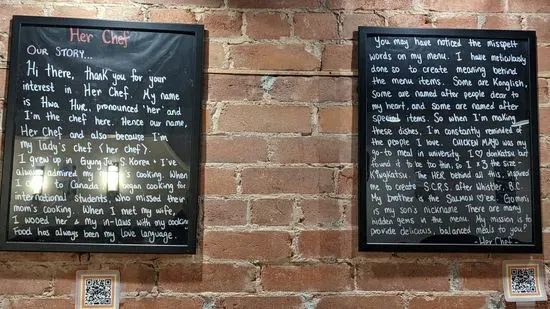 Her Chef
Our Story...
Hi there, thank you for your
interest in Her Chef. My name
is Hwa Hur, pronounced 'her' and
I'm the chef here. Hence our name,
Her Chef and also because I'm
my lady's chef (her chef).
I grew up in GyungJu, S. Korea & I've
always admired my mom's cooking. When
I came to Canada, I began cooking for
international students, who missed their
mom's cooking. When I met my wife,
I wooed her & my in-laws with my cooking
Food has always been my love language.
You may have noticed the misspelt
words on my menu. I have meticulously
done so to create meaning behind
the menu items. Some are Konglish,
some are named after people dear to
my heart, and some are named after
special items. So when I'm making
these dishes, I'm constantly reminded of
the people I love. CHICKEN MAYO was my
go-to meal in university. I ♡ donkatsu but
found it to be too thin, so I x3 the size -
K*ngKatsu. The HER behind all this, inspired
me to create S.C.R.S. after Whistler, B.C.
My brother is the SALMON ♡er. Gommi
is my son's nickname. There are many
hidden gems in the menu. My mission is to
provide delicious, balanced meals to you?
- Her Chef -